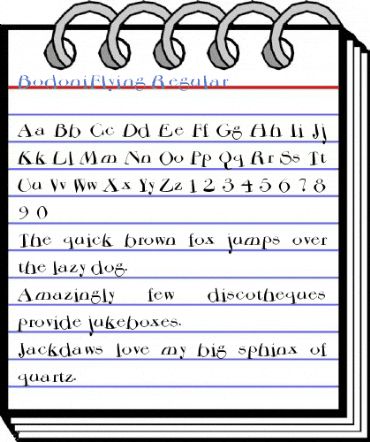 BodoniFlying Regular
Aa Bb Cc Dd Ee Ff Gg Hh Ii Jj
Kk Ll Mm Nn Oo Pp Qq Rr Ss Tt
Uu Vv Ww Xx Yy Zz 1 2 3 4 5 6 7 8
9 0
The quick brown fox jumps over
the lazy dog.
Amazingly few discotheques
provide jukeboxes.
Jackdaws love my big sphinx of
quartz.